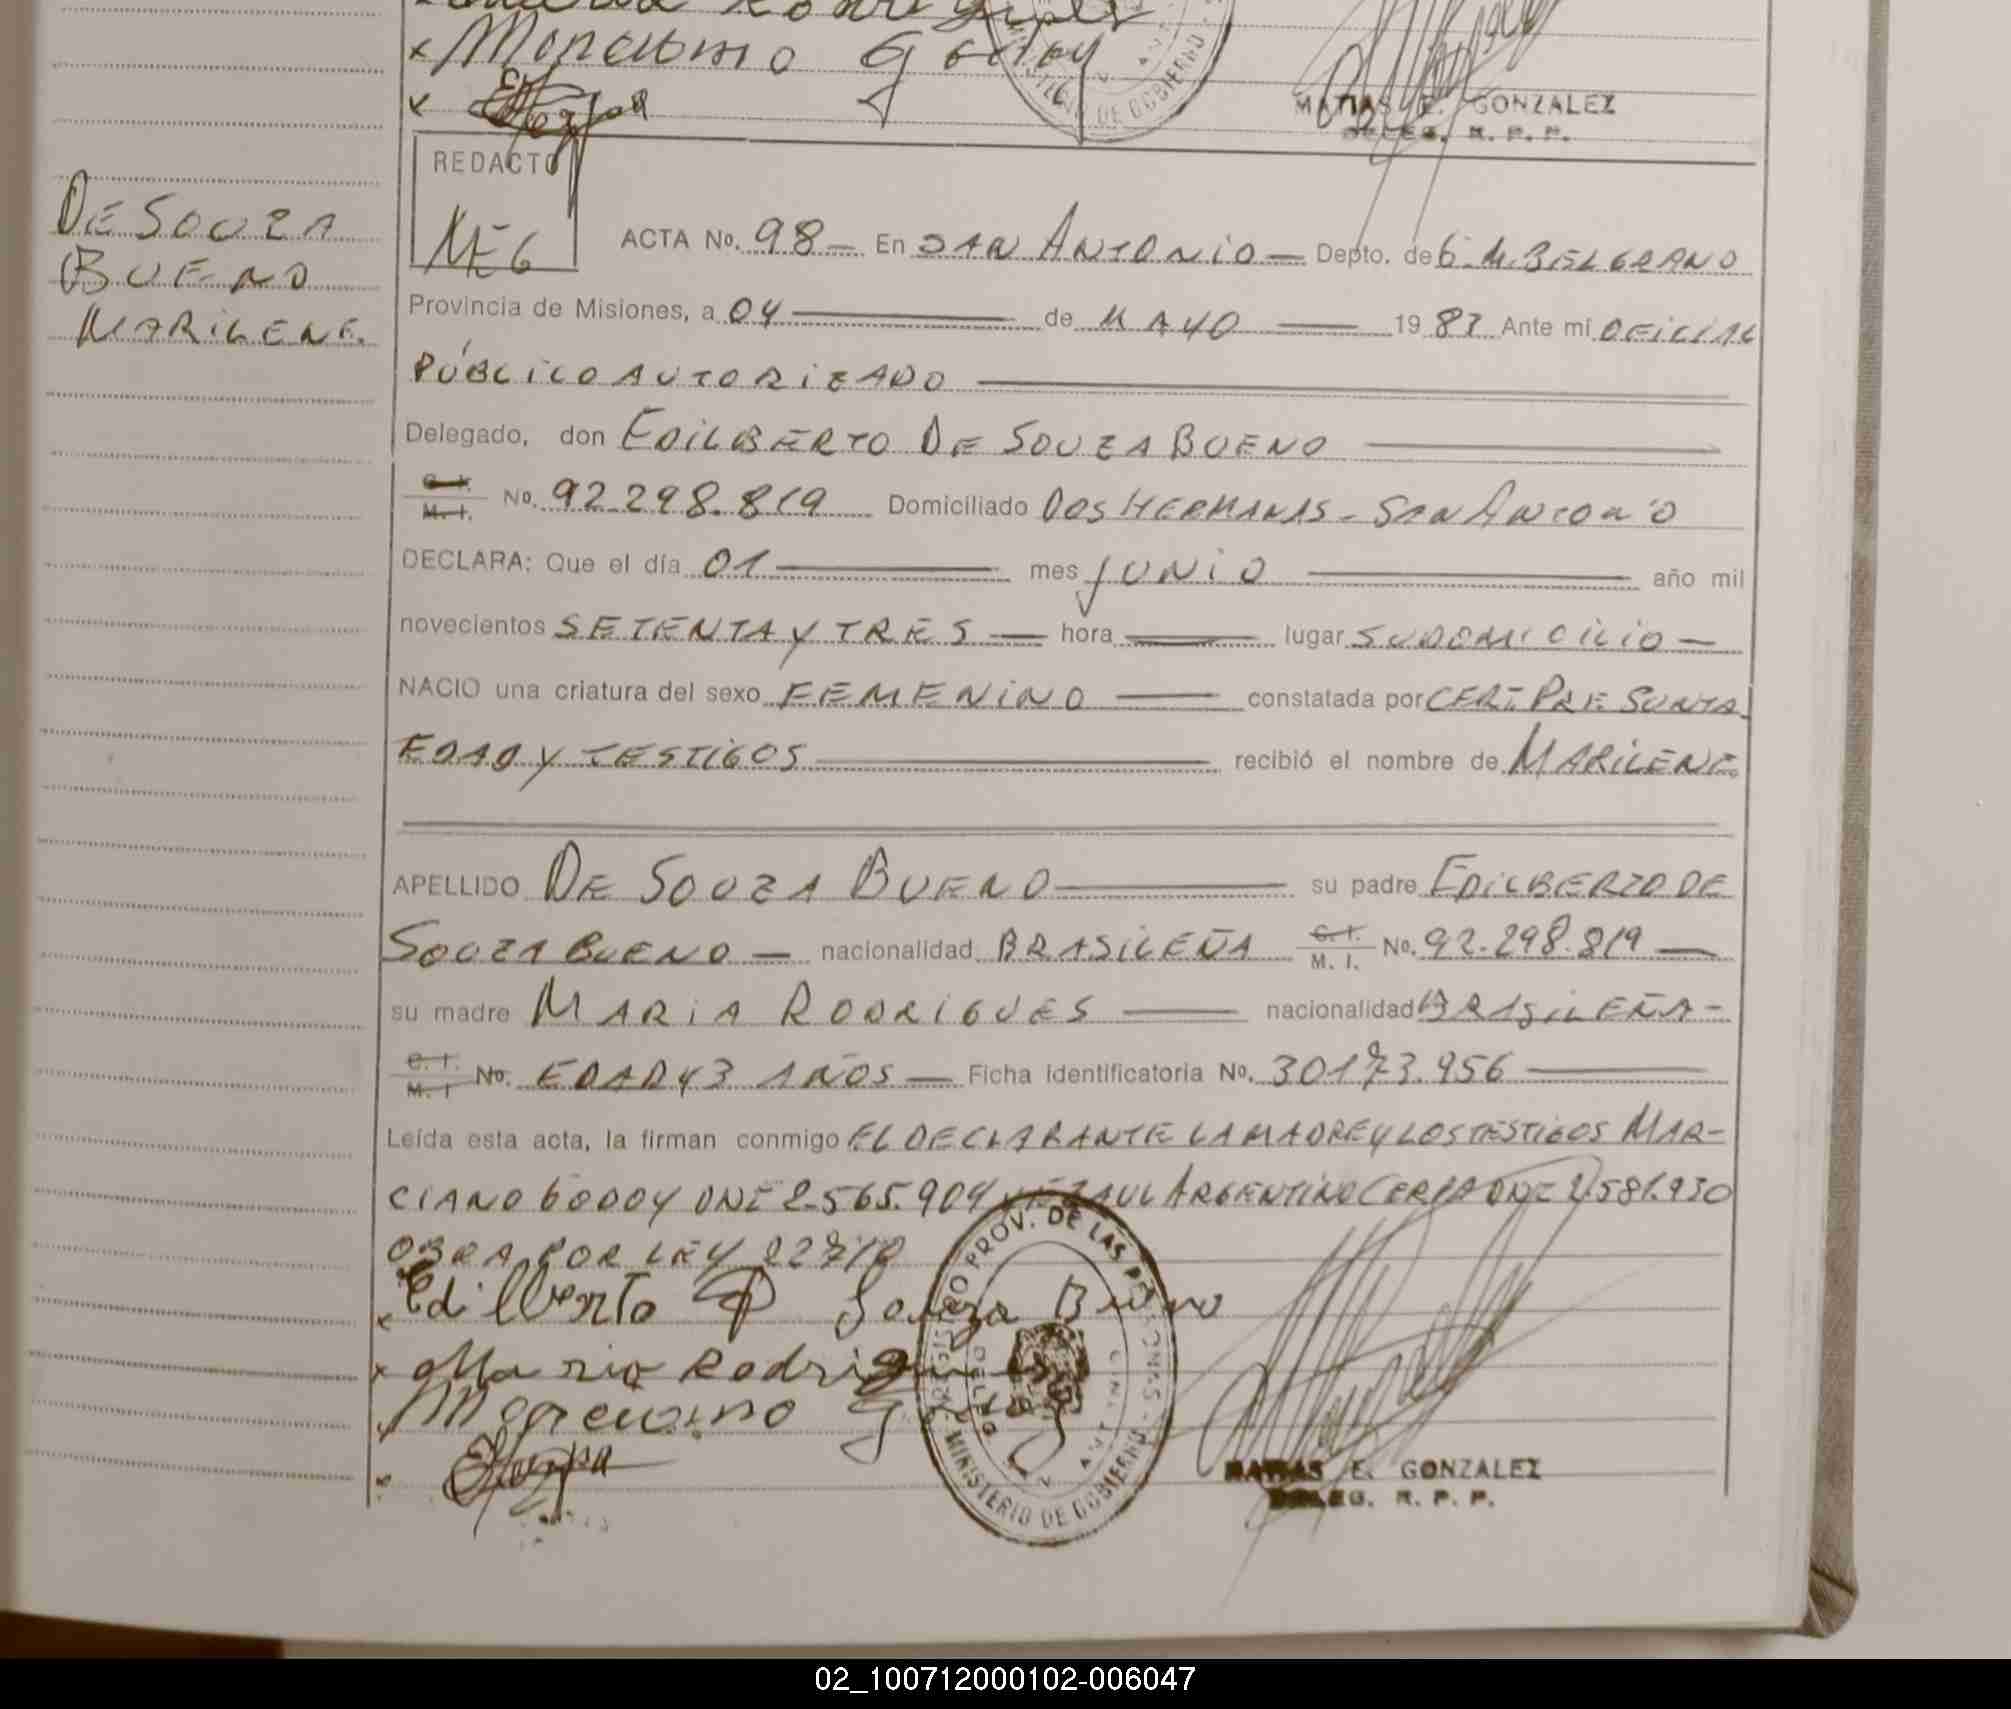 Rodrigues
Marciano Godoy
MINISTERIO DE GOBIERNO
MATIAS E. GONZALEZ
DELEG. R. P. P.
REDACTO
MEG
DE SOUZA
BUENO
MARILENE.
ACTA No. 98 — En SAN ANTONIO — Depto. de G. M. BELGRANO
Provincia de Misiones, a 04 — de MAYO — 1983 Ante mí OFICIAL
PÚBLICO AUTORIZADO —
Delegado, don EDILBERTO DE SOUZA BUENO —
C. I. M. I. No. 92.298.819 Domiciliado DOS HERMANAS - SAN ANTONIO
DECLARA: Que el día 01 — mes JUNIO — año mil
novecientos SETENTA Y TRES — hora — lugar SU DOMICILIO —
NACIO una criatura del sexo FEMENINO — constatada por CERT. PRESUNTA
EDAD Y TESTIGOS — recibió el nombre de MARILENE
APELLIDO DE SOUZA BUENO — su padre EDILBERTO DE
SOUZA BUENO — nacionalidad BRASILEÑA C. I. M. I. No. 92.298.819 —
su madre MARIA RODRIGUES — nacionalidad BRASILEÑA —
C. I. M. I No. EDAD 43 AÑOS — Ficha identificatoria No. 30173.956 —
Leída esta acta, la firman conmigo EL DECLARANTE LA MADRE Y LOS TESTIGOS MAR-
CIANO GODOY DNI 2.565.904 ARGENTINO
OBRA POR LEY
x Edilberto D Souza Bueno
x Maria Rodrigues
Marciano
REGISTRO PROV. DE LAS PERSONAS - MINISTERIO DE GOBIERNO
MATIAS E. GONZALEZ
DELEG. R. P. P.
02_100712000102-006047